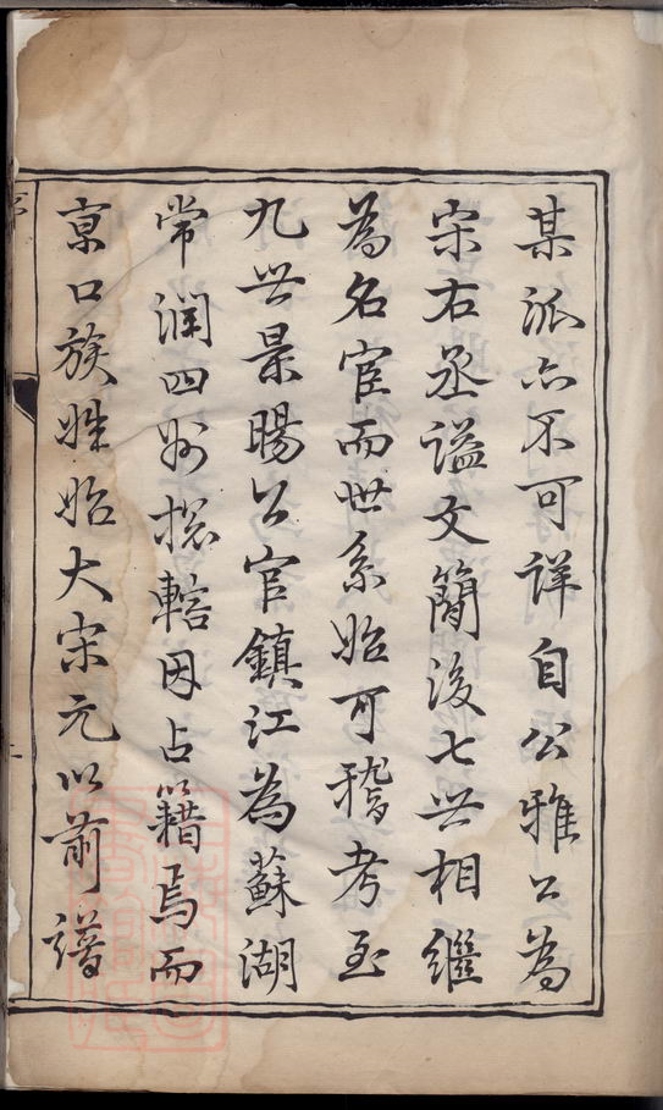 某派亦不可詳自公雅公為
宋右丞謚文簡後七世相繼
為名宦而世系始可稽考至
九世景暘公官鎮江為蘇湖
常潤四州提轄因占籍焉而
京口族姓始大宋元以前譜